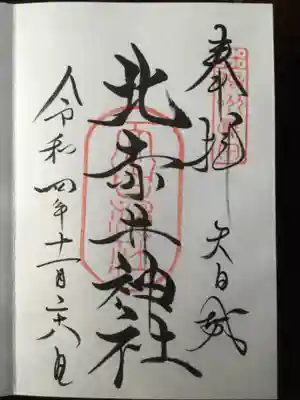 奉拝
北赤井神社
令和四年十一月二十八日